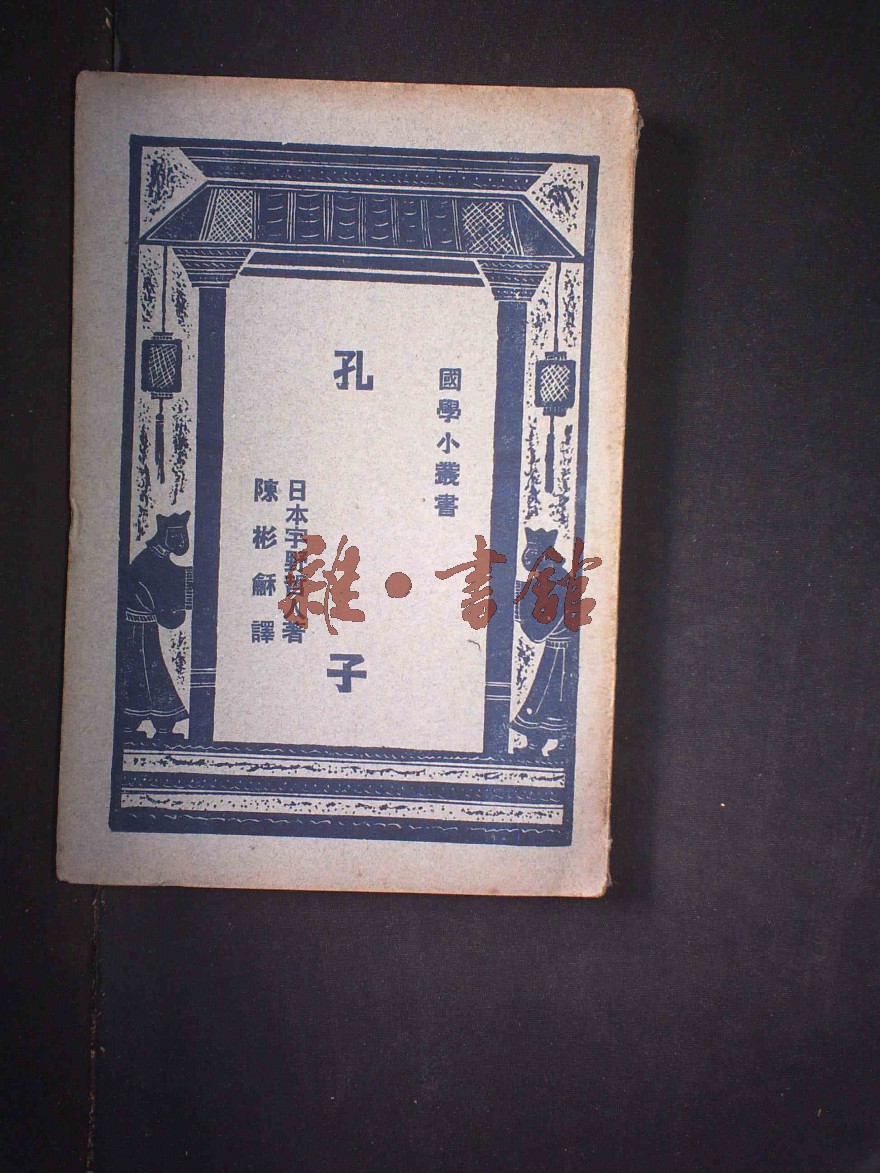 國學小叢書
孔子
日本宇野哲人著
陳彬龢譯
雜·書館